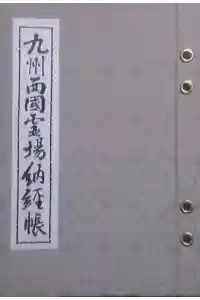 九州西國霊場納経帳